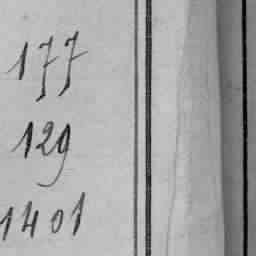 177
129
1401